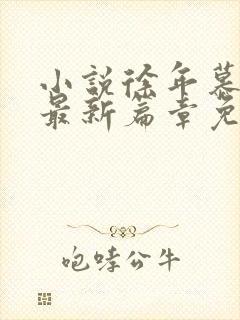 小说徐年慕
最新篇章免
咆哮公牛